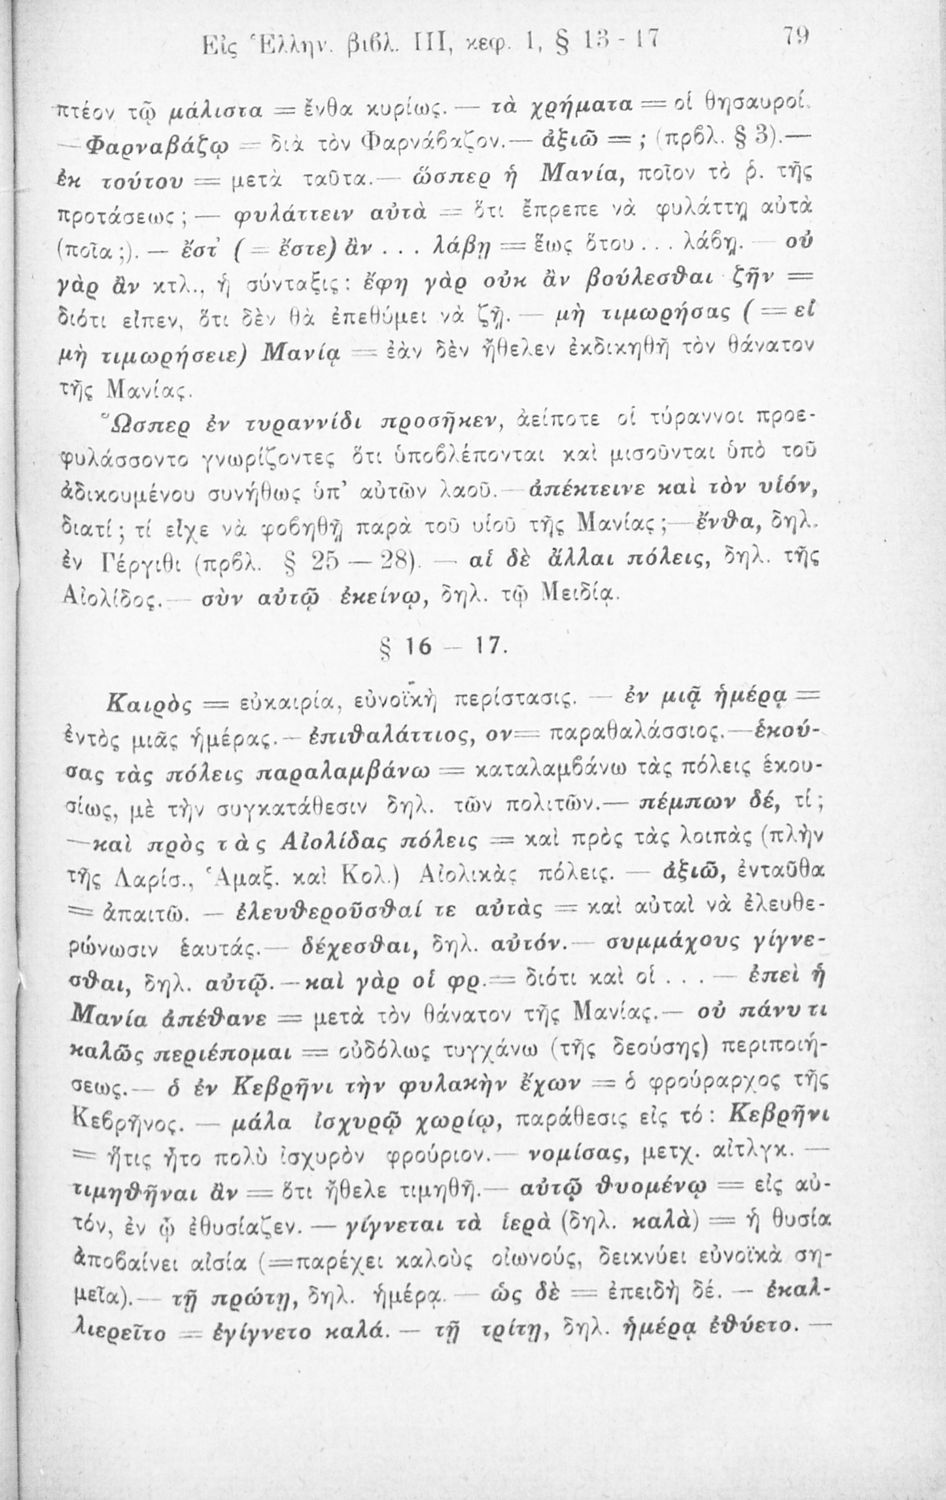 Εἰς Ἑλλην. βιβλ. III, κεφ. 1, § 13 - 17 79
πτέον τῷ μάλιστα = ἔνθα κυρίως. — τὰ χρήματα = οἱ θησαυροί.
— Φαρναβάζῳ = διὰ τὸν Φαρνάβαζον.— ἀξιῶ = ; (πρβλ. § 3).—
ἐκ τούτου = μετὰ ταῦτα.— ὥσπερ ἡ Μανία, ποῖον τὸ ῥ. τῆς
προτάσεως ; — φυλάττειν αὐτὰ = ὅτι ἔπρεπε νὰ φυλάττῃ αὐτὰ
(ποῖα ;). — ἔστ' ( = ἔστε) ἂν . . . λάβῃ = ἕως ὅτου . . . λάβῃ. — οὐ
γὰρ ἂν κτλ., ἡ σύνταξις : ἔφη γὰρ οὐκ ἂν βούλεσθαι ζῆν =
διότι εἶπεν, ὅτι δὲν θὰ ἐπεθύμει νὰ ζῇ. — μὴ τιμωρήσας ( = εἰ
μὴ τιμωρήσειε) Μανίᾳ = ἐὰν δὲν ἤθελεν ἐκδικηθῆ τὸν θάνατον
τῆς Μανίας.
Ὥσπερ ἐν τυραννίδι προσῆκεν, ἀείποτε οἱ τύραννοι προε-
φυλάσσοντο γνωρίζοντες ὅτι ὑποβλέπονται καὶ μισοῦνται ὑπὸ τοῦ
ἀδικουμένου συνήθως ὑπ' αὐτῶν λαοῦ.— ἀπέκτεινε καὶ τὸν υἱόν,
διατί ; τί εἶχε νὰ φοβηθῇ παρὰ τοῦ υἱοῦ τῆς Μανίας ;— ἔνθα, δηλ.
ἐν Γέργιθι (πρβλ. § 25 — 28). — αἱ δὲ ἄλλαι πόλεις, δηλ. τῆς
Αἰολίδος.— σὺν αὐτῷ ἐκείνῳ, δηλ. τῷ Μειδίᾳ.
§ 16 — 17.
Καιρὸς = εὐκαιρία, εὐνοϊκὴ περίστασις. — ἐν μιᾷ ἡμέρᾳ =
ἐντὸς μιᾶς ἡμέρας.— ἐπιθαλάττιος, ον= παραθαλάσσιος.—ἑκού-
σας τὰς πόλεις παραλαμβάνω = καταλαμβάνω τὰς πόλεις ἑκου-
σίως, μὲ τὴν συγκατάθεσιν δηλ. τῶν πολιτῶν.— πέμπων δέ, τί ;
—καὶ πρὸς τὰς Αἰολίδας πόλεις = καὶ πρὸς τὰς λοιπὰς (πλὴν
τῆς Λαρίσ., Ἁμαξ. καὶ Κολ.) Αἰολικὰς πόλεις. — ἀξιῶ, ἐνταῦθα
= ἀπαιτῶ. — ἐλευθεροῦσθαί τε αὐτὰς = καὶ αὐταὶ νὰ ἐλευθε-
ρώνωσιν ἑαυτάς.— δέχεσθαι, δηλ. αὐτόν.— συμμάχους γίγνε-
σθαι, δηλ. αὐτῷ.—καὶ γὰρ οἱ φρ.= διότι καὶ οἱ . . . — ἐπεὶ ἡ
Μανία ἀπέθανε = μετὰ τὸν θάνατον τῆς Μανίας.— οὐ πάνυ τι
καλῶς περιέπομαι = οὐδόλως τυγχάνω (τῆς δεούσης) περιποιή-
σεως.— ὁ ἐν Κεβρῆνι τὴν φυλακὴν ἔχων = ὁ φρούραρχος τῆς
Κεβρῆνος. — μάλα ἰσχυρῷ χωρίῳ, παράθεσις εἰς τό : Κεβρῆνι
= ἥτις ἦτο πολὺ ἰσχυρὸν φρούριον.— νομίσας, μετχ. αἰτλγκ. —
τιμηθῆναι ἂν = ὅτι ἤθελε τιμηθῆ.— αὐτῷ θυομένῳ = εἰς αὐ-
τόν, ἐν ᾧ ἐθυσίαζεν. — γίγνεται τὰ ἱερὰ (δηλ. καλὰ) = ἡ θυσία
ἀποβαίνει αἰσία (=παρέχει καλοὺς οἰωνούς, δεικνύει εὐνοϊκὰ ση-
μεῖα).— τῇ πρώτῃ, δηλ. ἡμέρᾳ. — ὡς δὲ = ἐπειδὴ δέ. — ἐκαλ-
λιερεῖτο = ἐγίγνετο καλά. — τῇ τρίτῃ, δηλ. ἡμέρᾳ ἐθύετο. —